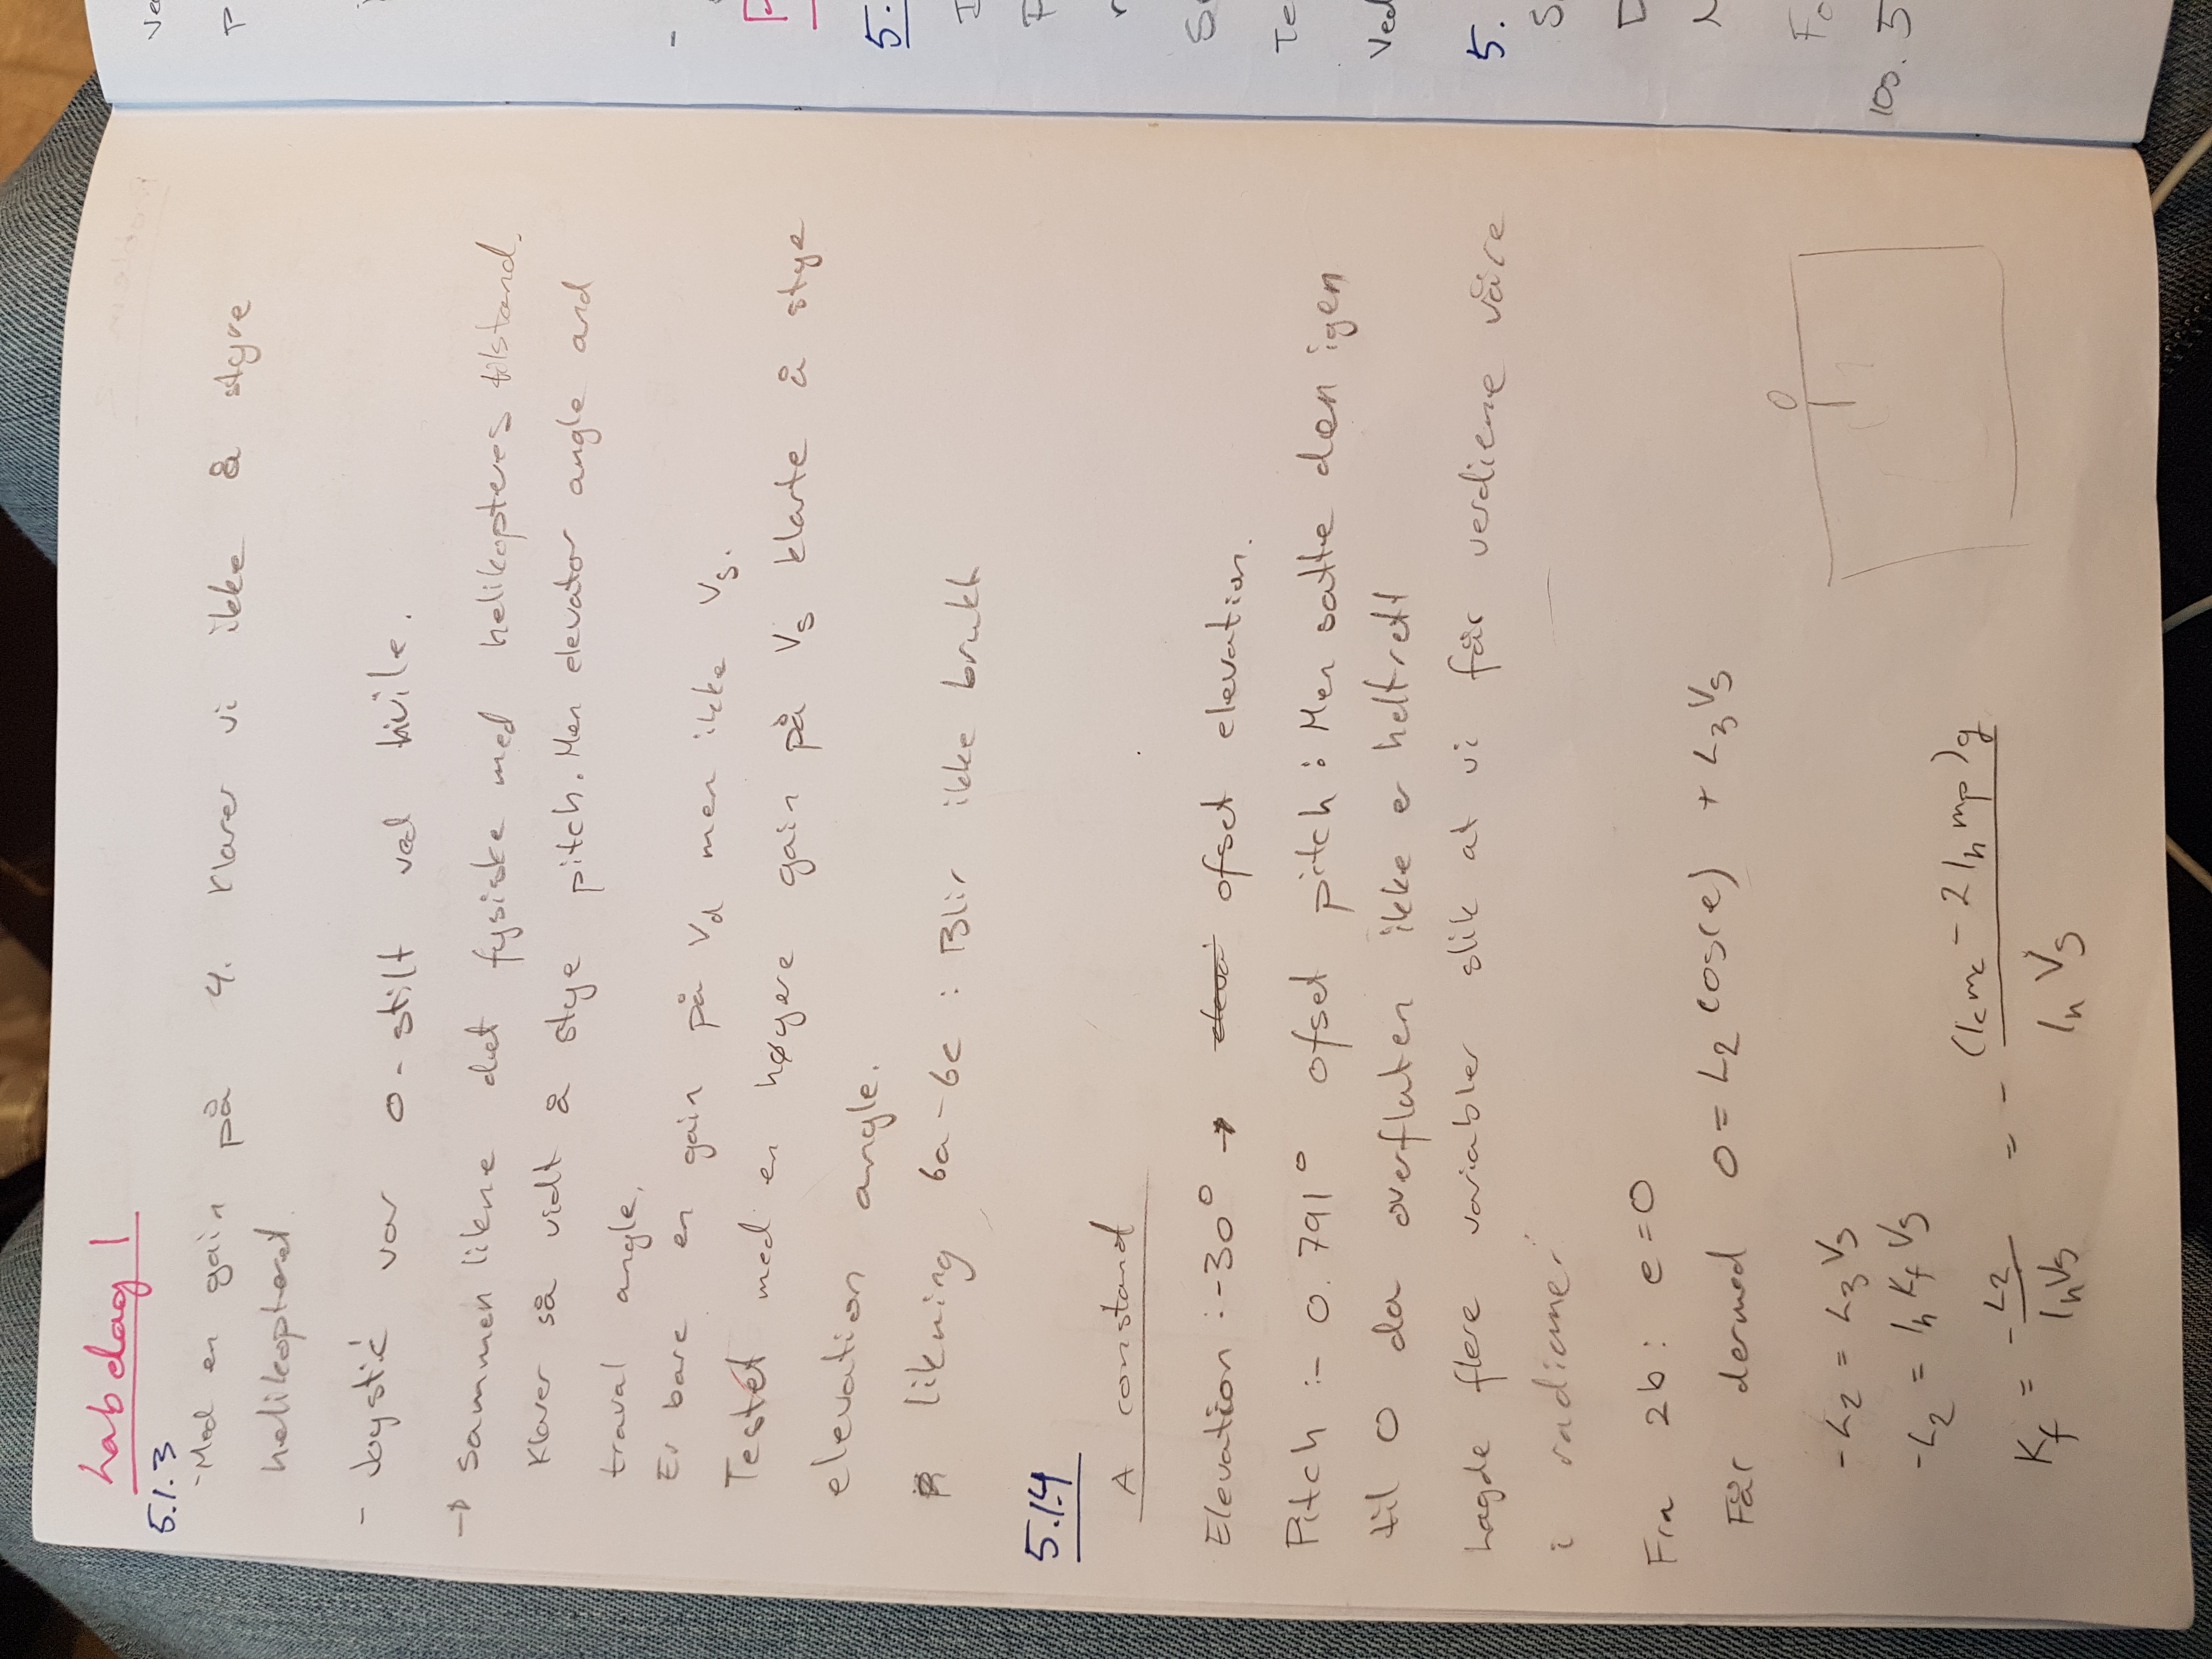 Labdag 1
5.1.3
- Med en gain på 4. Klarer vi ikke å styre
helikopteret.
- Joystic var 0-stilt ved hivile.
→ Sammenlikne det fysiske med helikopteres tilstand.
Klarer så vidt å stye pitch. Men elevator angle and
traval angle.
Er bare en gain på Vd men ikke Vs.
Testet med en høyere gain på Vs klarte å stye
elevation angle.
likning 6a-6c : Blir ikke brukt
5.1.4
A constand
Elevation : -30° → ofset elevation.
Pitch : - 0.791° ofset pitch : Men satte den igen
til 0 da overflaten ikke er heltrett
Lagde flere variabler slik at vi får verdiene våre
i radianer
Fra 2b: e=0
Får dermed 0 = L2 cos(e) + L3 Vs
-L2 = L3 Vs
-L2 = lh Kf Vs
Kf = -L2 / lh Vs = - (lc mc - 2 lh mp)g / lh Vs
0
Ve
P
5.
P
Te
Ved
5.
Fo
5